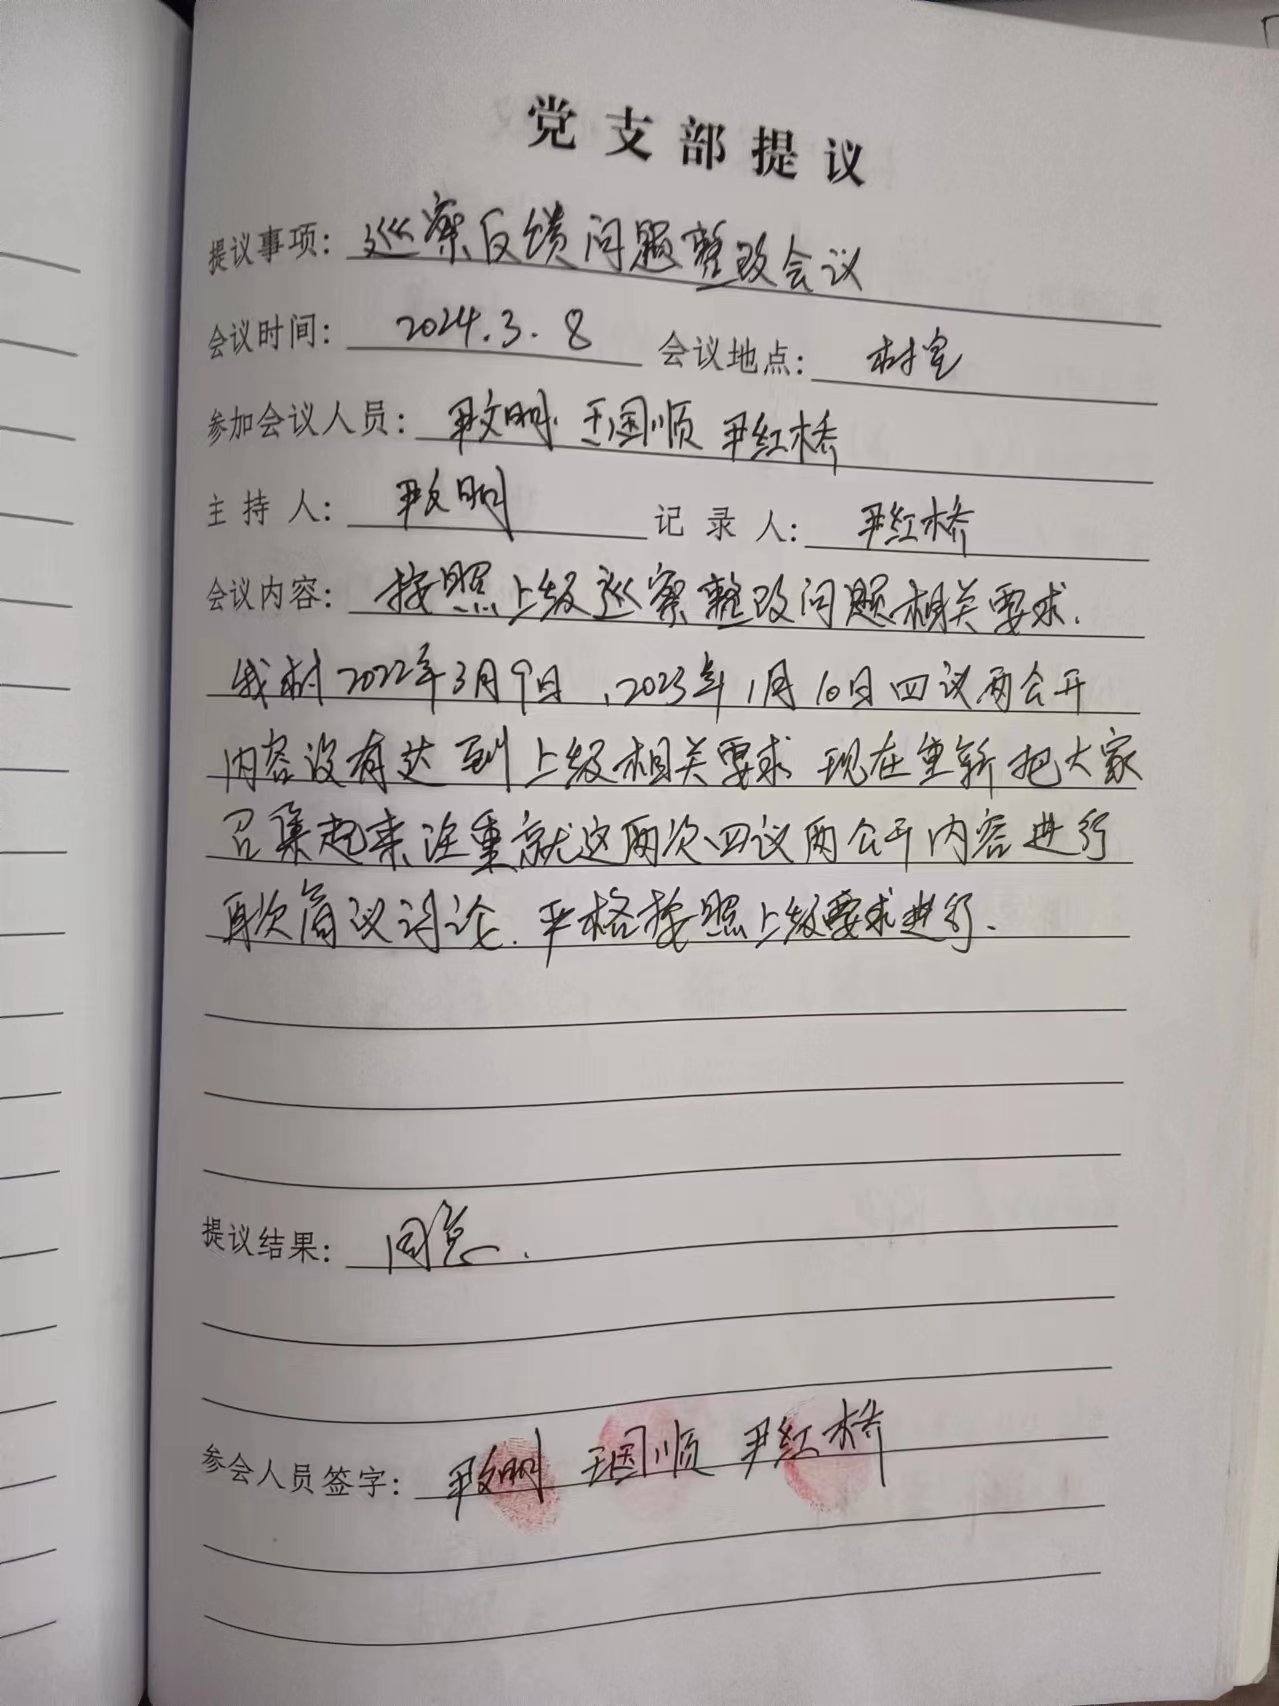 党支部提议
提议事项：巡察反馈问题整改会议
会议时间：2024.3.8 会议地点：村室
参加会议人员：尹文明 王国顺 尹红桥
主持人：尹文明 记录人：尹红桥
会议内容：按照上级巡察整改问题相关要求.
我村2022年3月9日,2023年1月10日四议两公开
内容没有达到上级相关要求 现在重新把大家
召集起来注重就这两次四议两公开内容进行
再次商议讨论.严格按照上级要求进行.
提议结果：同意.
参会人员签字：尹文明 王国顺 尹红桥